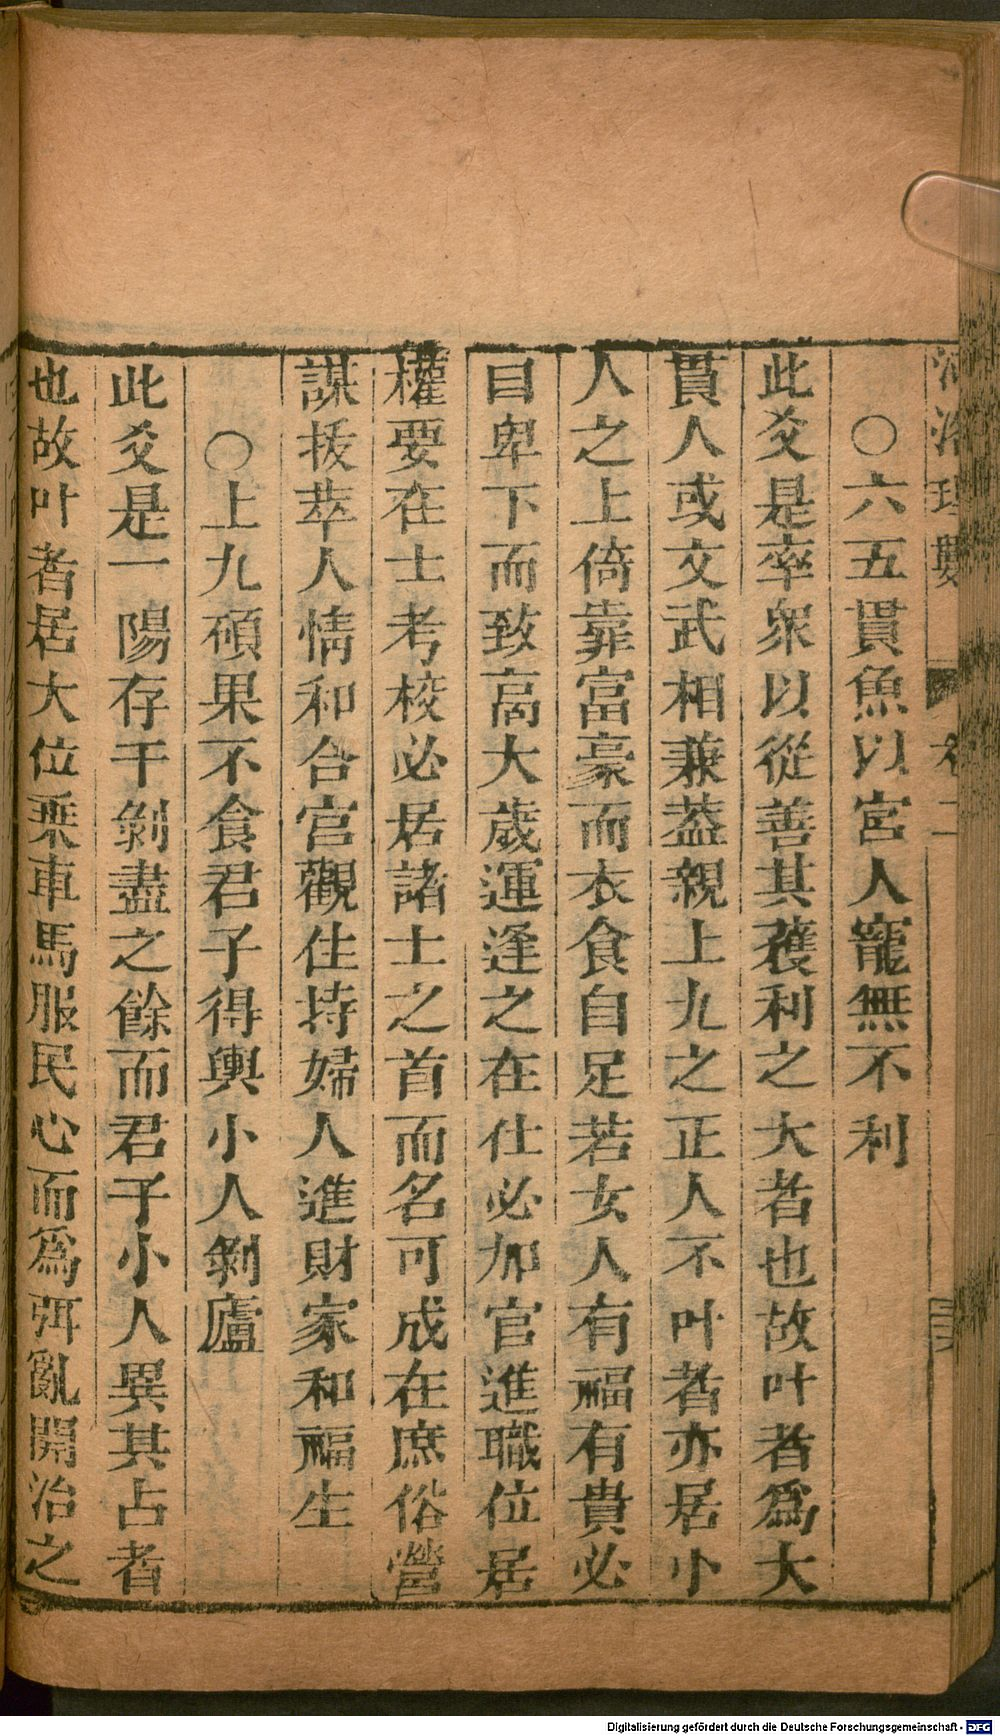 河洛理數 卷二
○六五貫魚以宮人寵無不利
此爻是率衆以從善其獲利之大者也故叶者爲大
貫人或文武相兼葢親上九之正人不叶者亦居小
人之上倚靠富豪而衣食自足若女人有福有貴必
自卑下而致高大歲運逢之在仕必加官進職位居
權要在士考校必居諸士之首而名可成在庶俗營
謀拔萃人情和合官觀住持婦人進財家和福生
○上九碩果不食君子得輿小人剝廬
此爻是一陽存于剝盡之餘而君子小人異其占者
也故叶者居大位乗車馬服民心而爲弭亂開治之
Digitalisierung gefördert durch die Deutsche Forschungsgemeinschaft - DFG